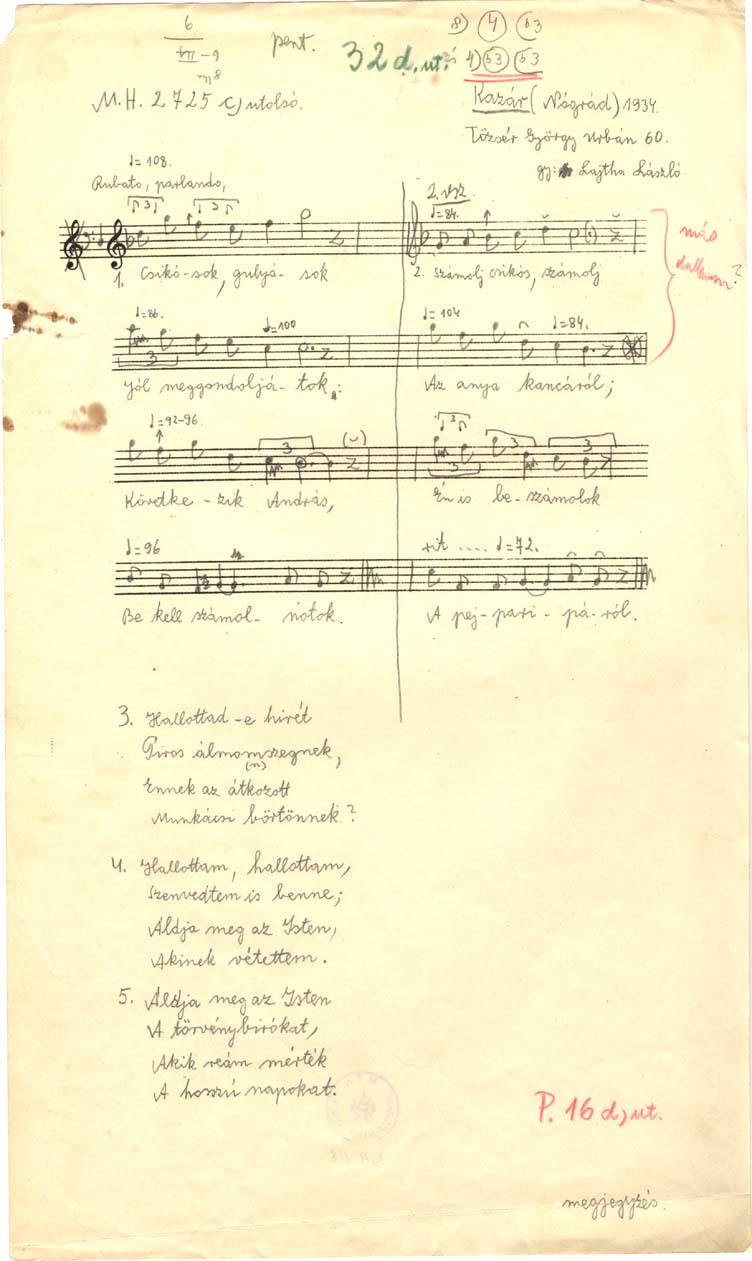 6
pent.
32 d. ut.
8) 4 b3
és 4) b3 b3
M.H. 2725 c) utolsó.
Kazár (Nógrád) 1934.
Tőzsér György Urbán 60.
gy: Lajtha László
♩=108.
Rubato, parlando,
2. vsz.
♩=84.
3 3
más dallamsor?
1. Csikó-sok, gulyá-sok
2. Számolj csikós, számolj
♩=86. ♩=100
♩=104 ♩=84.
3
Jól meggondoljá-tok:
Az anya kancáról;
♩=92-96.
3
3 3 3 3
Követke-zik András,
Én is be-számolok
♩=96
rit .... ♩=72.
Be kell számol-notok.
A pej-pari-pá-ról.
3. Hallottad-e hirét
Piros álmomszegnek,
(n)
Ennek az átkozott
Munkácsi börtönnek?
4. Hallottam, hallottam,
Szenvedtem is benne;
Áldja meg az Isten,
Akinek vétettem.
5. Áldja meg az Isten
A törvénybirókat,
Akik reám mérték
A hosszú napokat.
P. 16 d) ut.
megjegyzés.